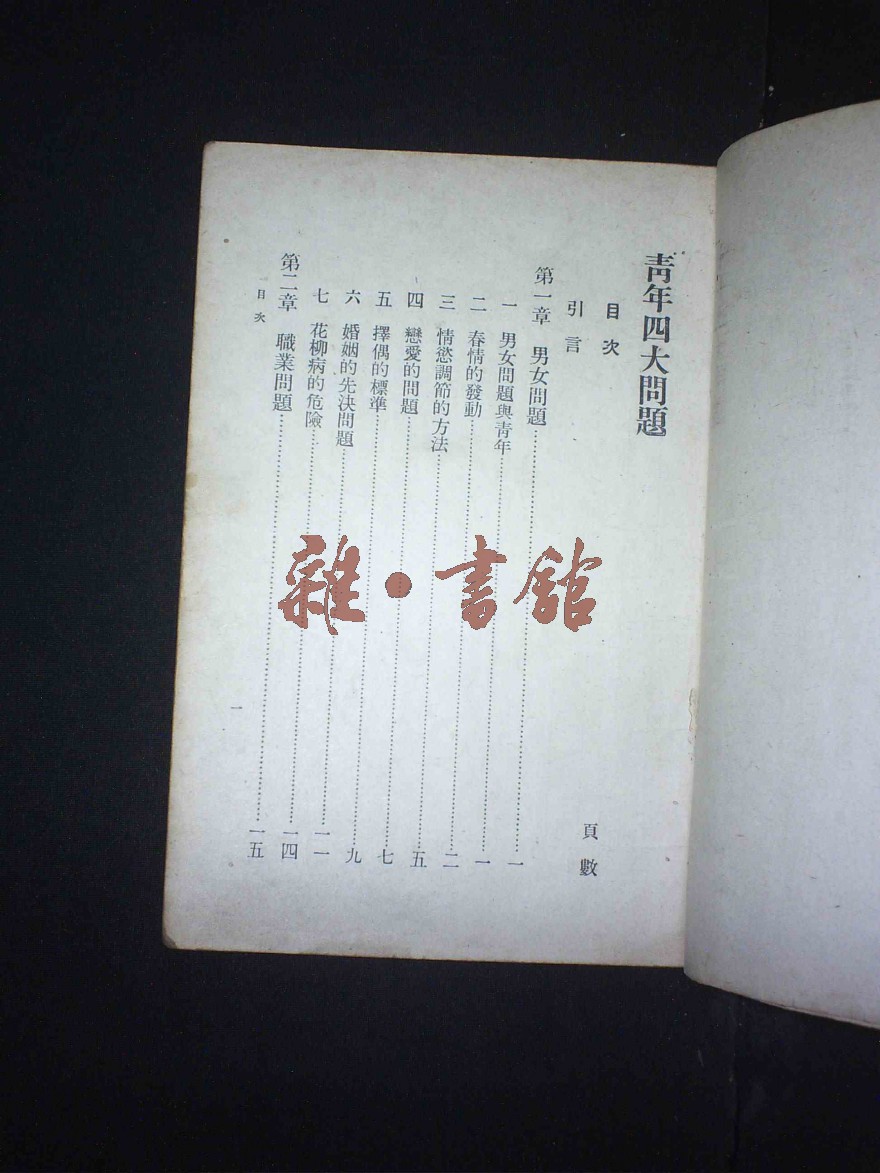 青年四大問題
目次 頁數
引言
第一章 男女問題……一
一 男女問題與青年……一
二 春情的發動……二
三 情慾調節的方法……五
四 戀愛的問題……七
五 擇偶的標準……九
六 婚姻的先決問題……一一
七 花柳病的危險……一四
第二章 職業問題……一五
目次 一
雜·書館